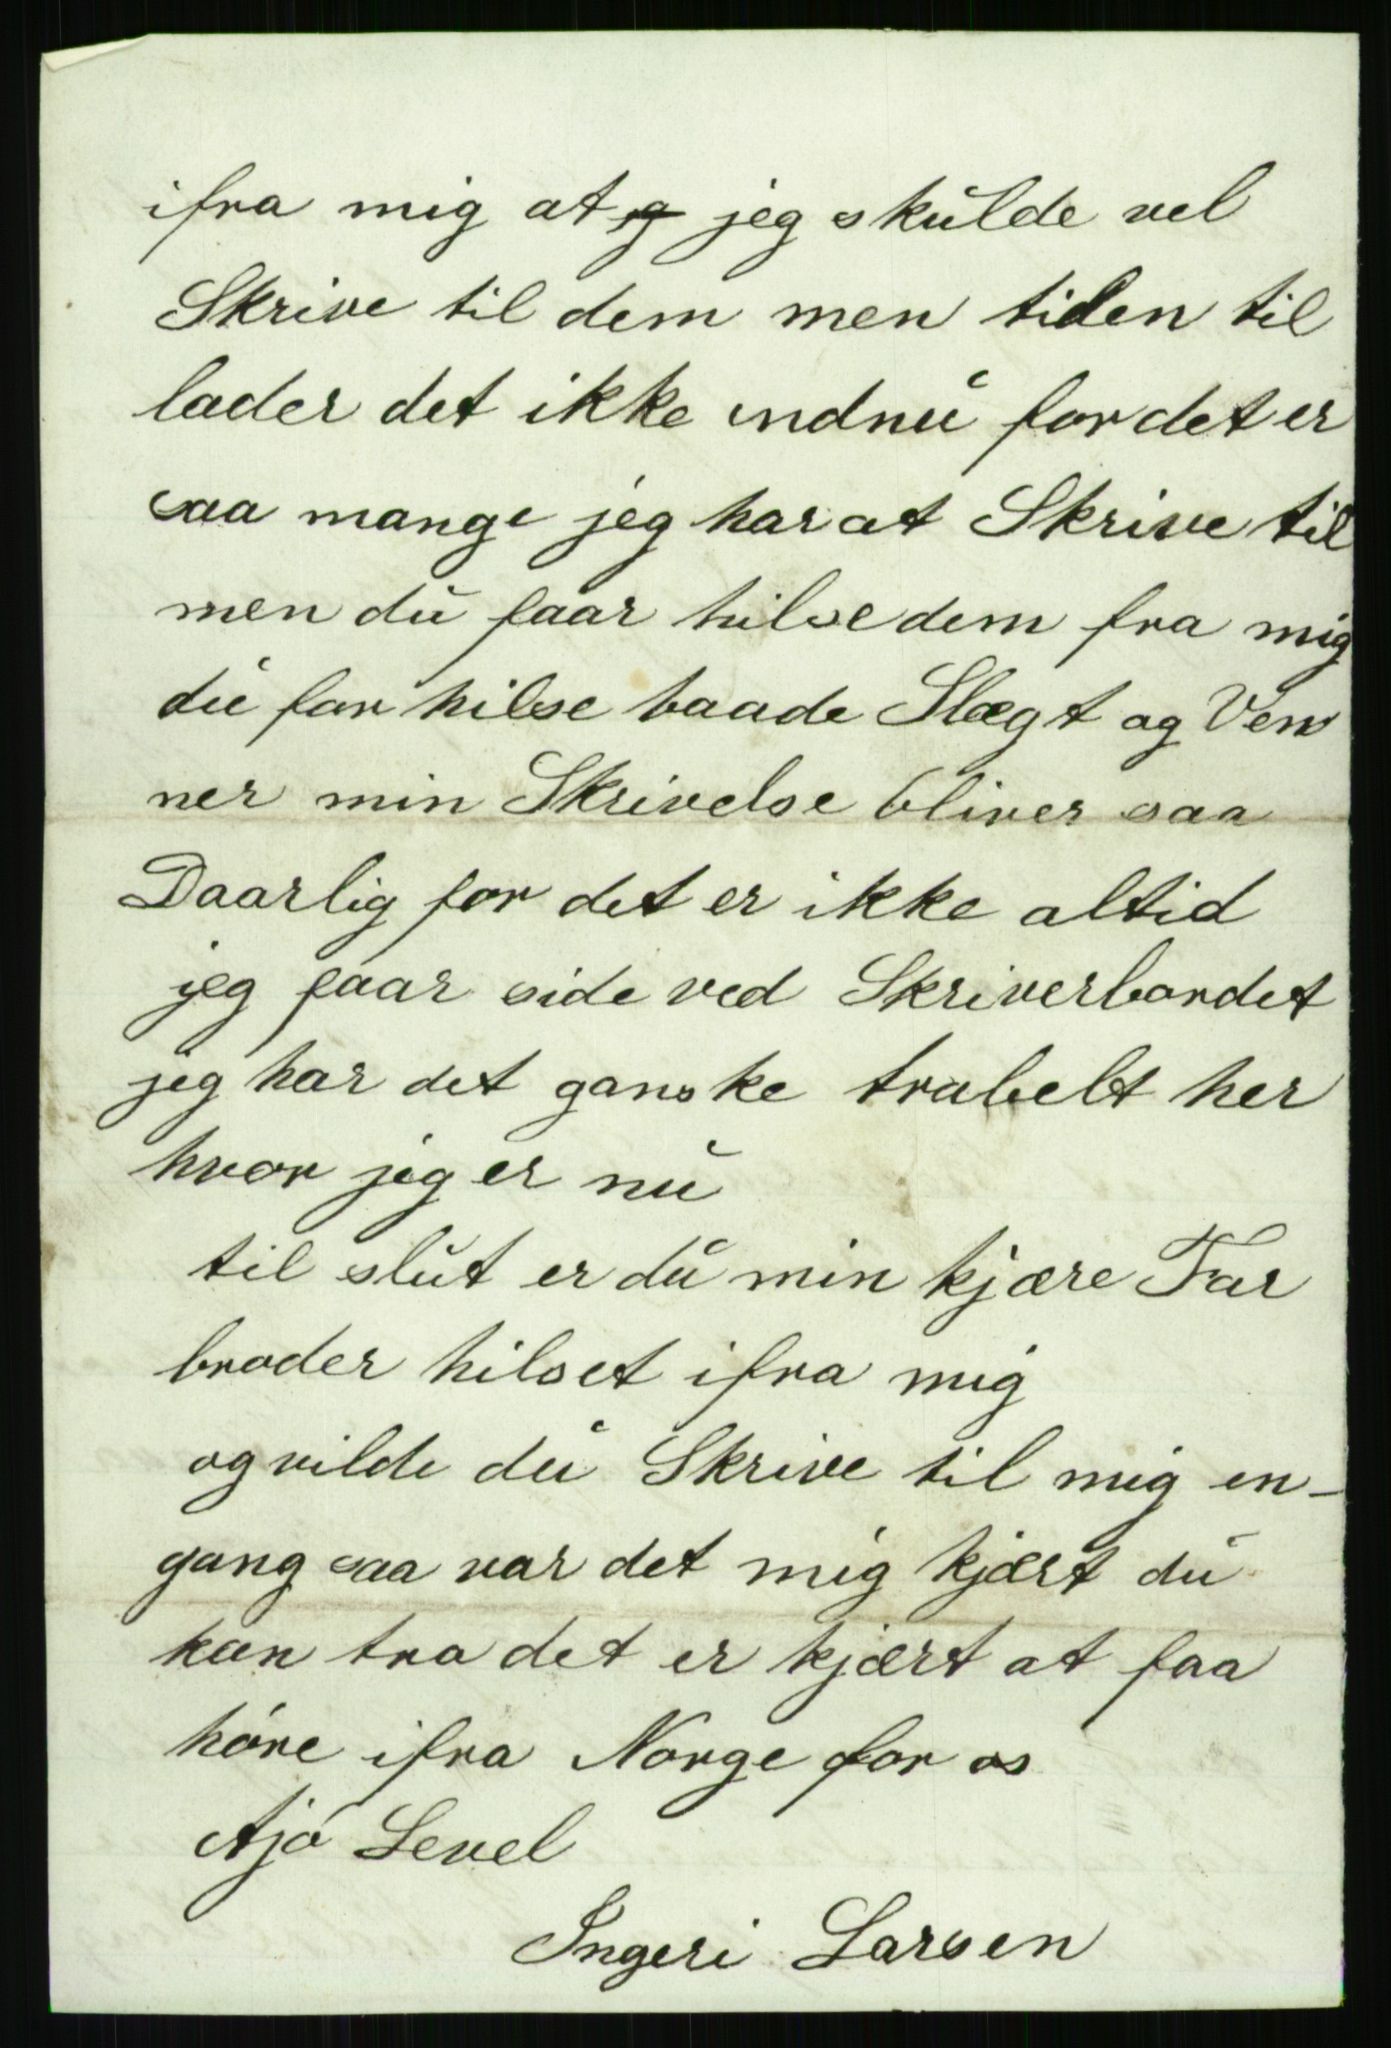 ifra mig at g jeg skulde vel
Skrive til dem men tiden til
lader det ikke endnu for det er
saa mange jeg har at Skrive til
men du faar hilse dem fra mig
du far hilse baade Slægt og Ven
ner min Skrivelse bliver saa
Daarlig for det er ikke altid
jeg faar side ved Skriverbordet
jeg har det ganske trabelt her
hvor jeg er nu
til slut er du min kjære Far
broder hilset ifra mig
og vilde du Skrive til mig en-
gang saa var det mig kjært du
kan tro det er kjært at faa
høre ifra Norge for os
Ajø Level
Ingeri Larsen